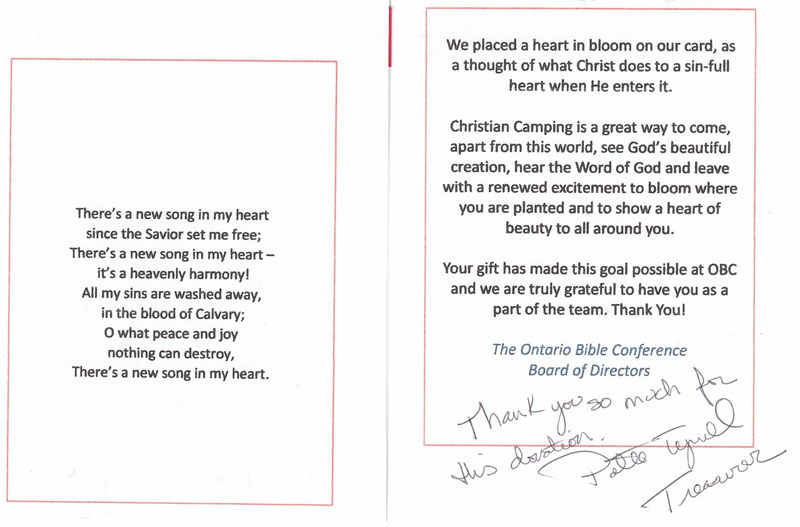 There's a new song in my heart
since the Savior set me free;
There's a new song in my heart –
it's a heavenly harmony!
All my sins are washed away,
in the blood of Calvary;
O what peace and joy
nothing can destroy,
There's a new song in my heart.
We placed a heart in bloom on our card, as
a thought of what Christ does to a sin-full
heart when He enters it.
Christian Camping is a great way to come,
apart from this world, see God's beautiful
creation, hear the Word of God and leave
with a renewed excitement to bloom where
you are planted and to show a heart of
beauty to all around you.
Your gift has made this goal possible at OBC
and we are truly grateful to have you as a
part of the team. Thank You!
The Ontario Bible Conference
Board of Directors
Thank you so much for
this donation.
Treasurer